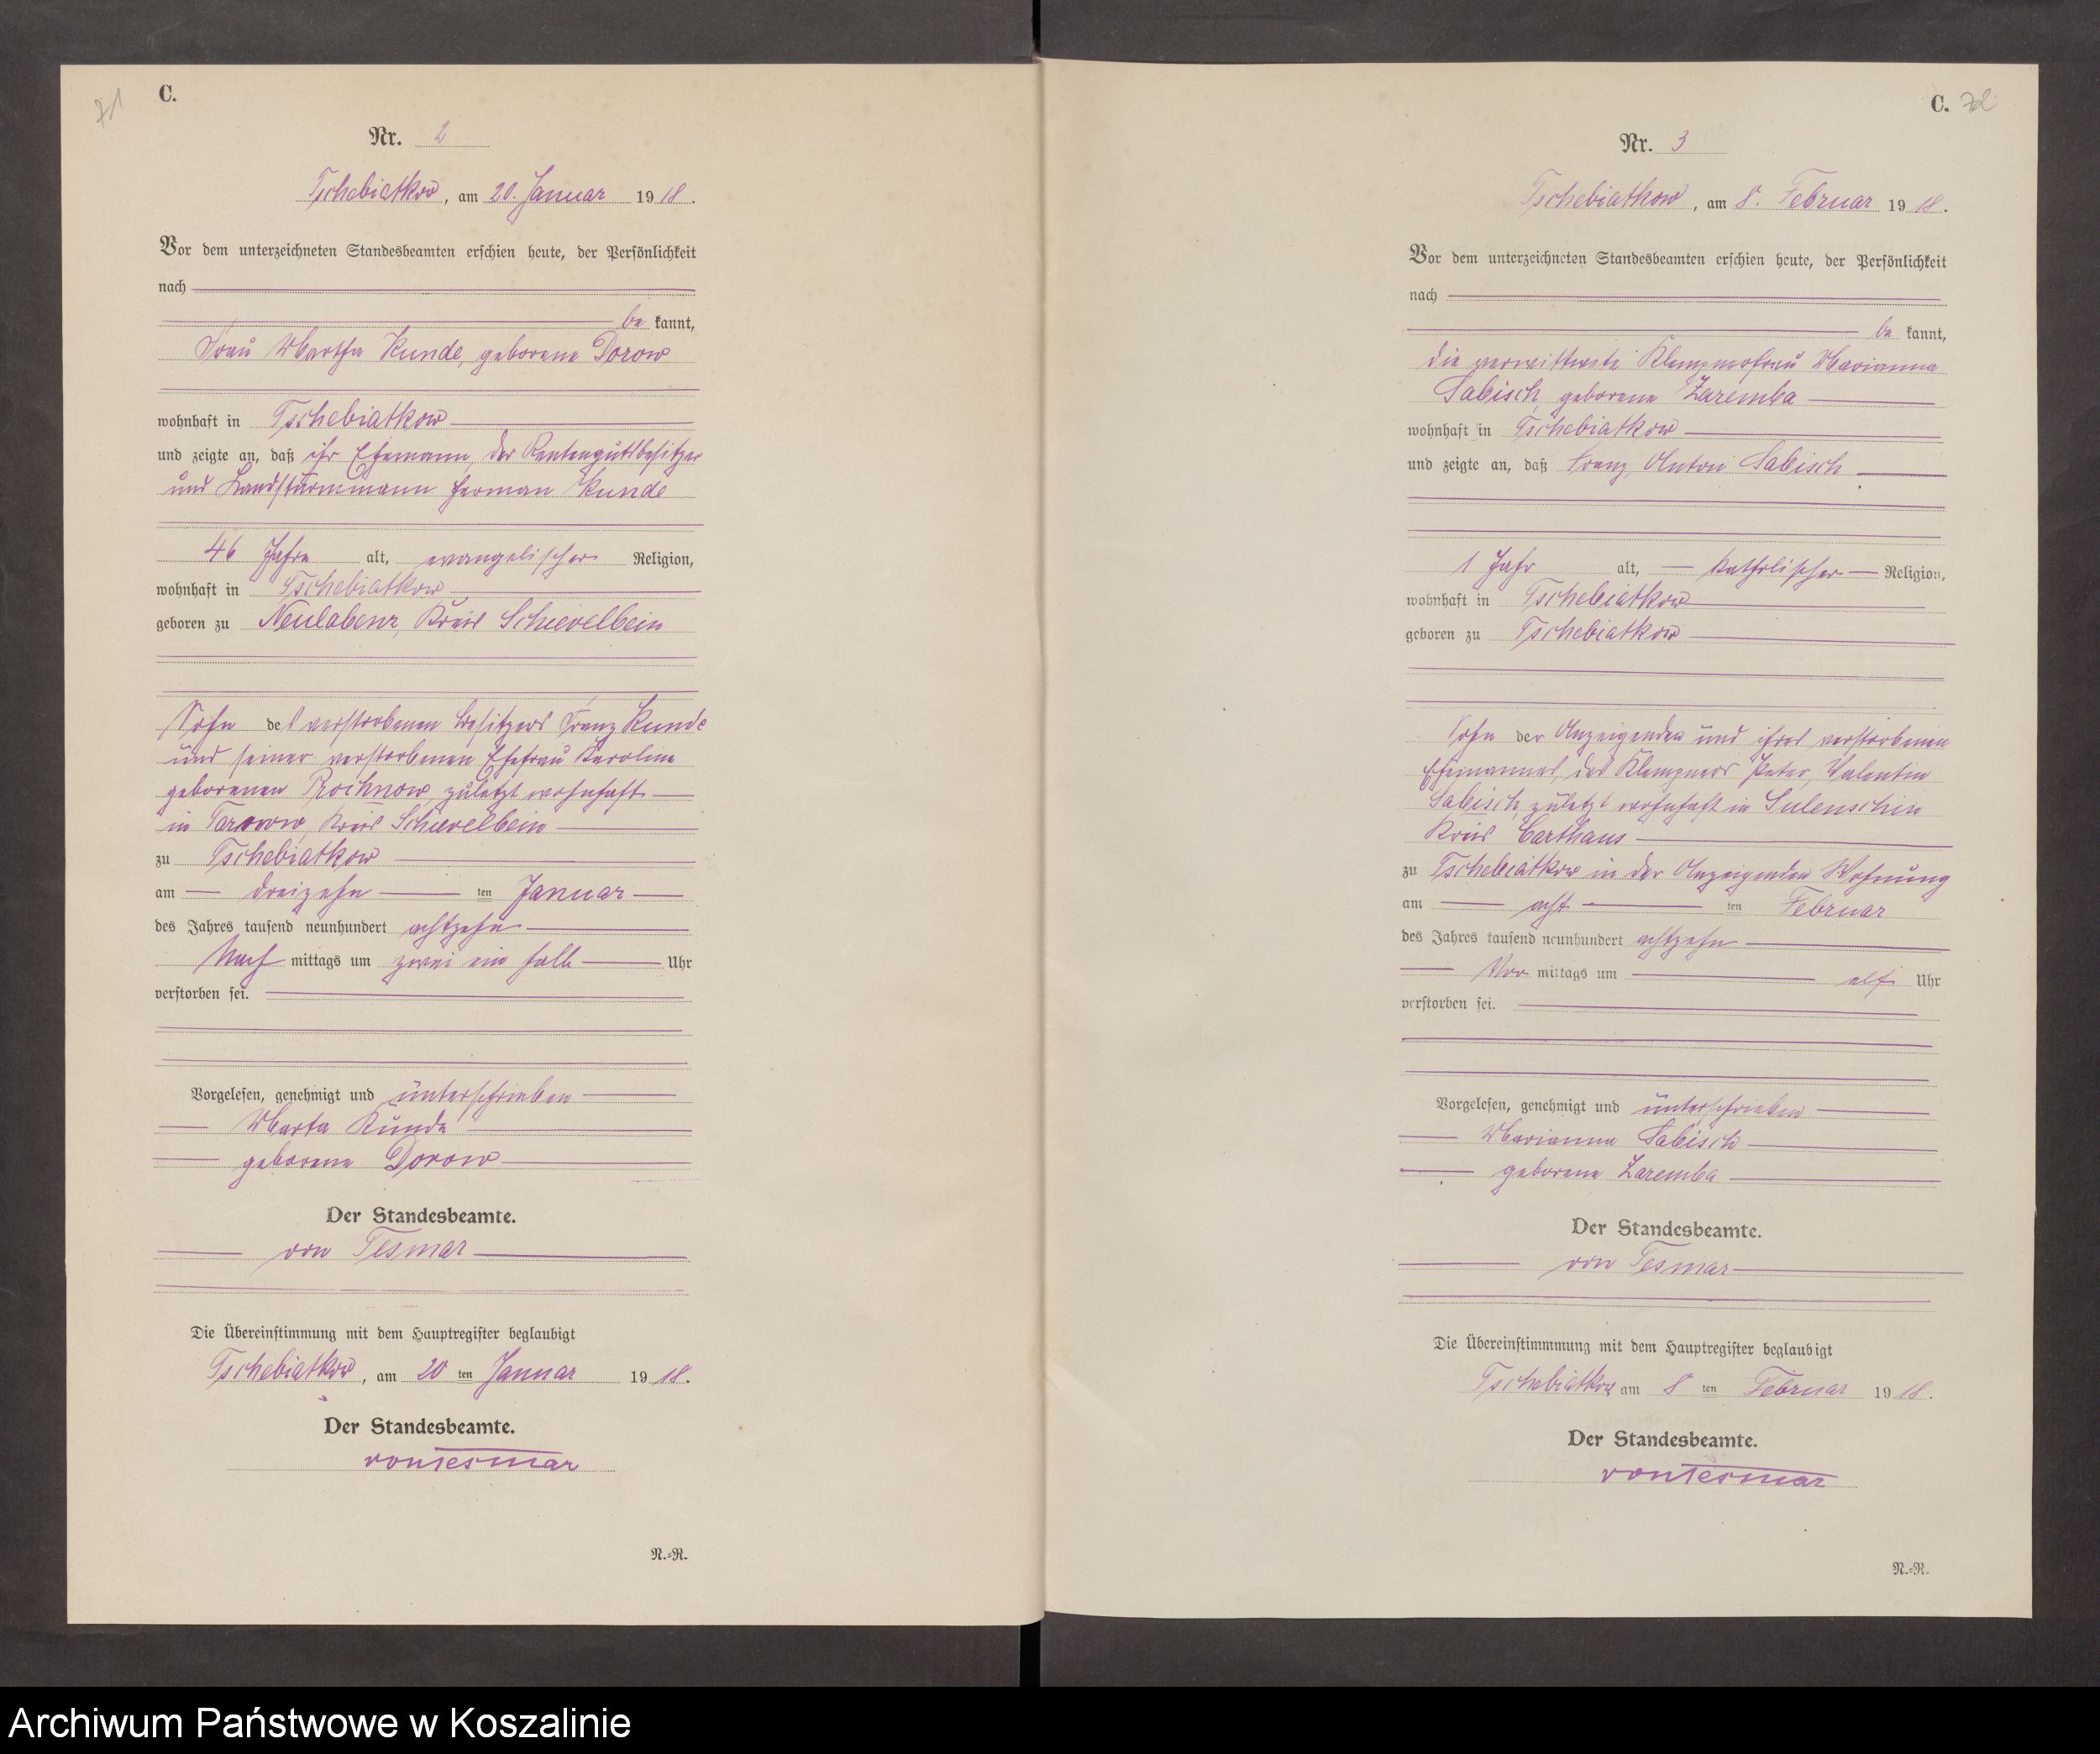 71
C.
Nr. 2
Tschebiatkow, am 20. Januar 1918.
Vor dem unterzeichneten Standesbeamten erschien heute, der Persönlichkeit
nach
be kannt,
Frau Martha Kunde, geborene Dorow
wohnhaft in Tschebiatkow
und zeigte an, daß ihr Ehemann, der Rentengutsbesitzer
und Landsturmmann Herman Kunde
46 Jahre alt, evangelischer Religion,
wohnhaft in Tschebiatkow
geboren zu Neulabenz, Kreis Schievelbein
Sohn des verstorbenen Besitzers Franz Kunde
und seiner verstorbenen Ehefrau Karoline
geborenen Rochnow, zuletzt wohnhaft
in Kreis Schievelbein
zu Tschebiatkow
am dreizehn ten Januar
des Jahres tausend neunhundert achtzehn
Nach mittags um zwei ein halb Uhr
verstorben sei.
Vorgelesen, genehmigt und unterschrieben
Marta Kunde
geborene Dorow
Der Standesbeamte.
von Tesmar
Die Übereinstimmung mit dem Hauptregister beglaubigt
Tschebiatkow, am 20 ten Januar 1918.
Der Standesbeamte.
von Tesmar
N.=R.
C. 72
Nr. 3
Tschebiatkow, am 8. Februar 1918.
Vor dem unterzeichneten Standesbeamten erschien heute, der Persönlichkeit
nach
be kannt,
die verwittwete Klempnerfrau Marianna
Sabisch, geborene Zaremba
wohnhaft in Tschebiatkow
und zeigte an, daß Franz, Anton Sabisch
1 Jahr alt, katholischer Religion,
wohnhaft in Tschebiatkow
geboren zu Tschebiatkow
Sohn der Anzeigenden und ihres verstorbenen
Ehemannes, des Klempners Peter, Valentin
Sabisch, zuletzt wohnhaft in Sulenschin
Kreis Carthaus
zu Tschebiatkow in der Anzeigenden Wohnung
am acht ten Februar
des Jahres tausend neunhundert achtzehn
Vor mittags um elf Uhr
verstorben sei.
Vorgelesen, genehmigt und unterschrieben
Marianna Sabisch
geborene Zaremba
Der Standesbeamte.
von Tesmar
Die Übereinstimmmung mit dem Hauptregister beglaubigt
Tschebiatkow am 8 ten Februar 1918.
Der Standesbeamte.
von Tesmar
N.=R.
Archiwum Państwowe w Koszalinie